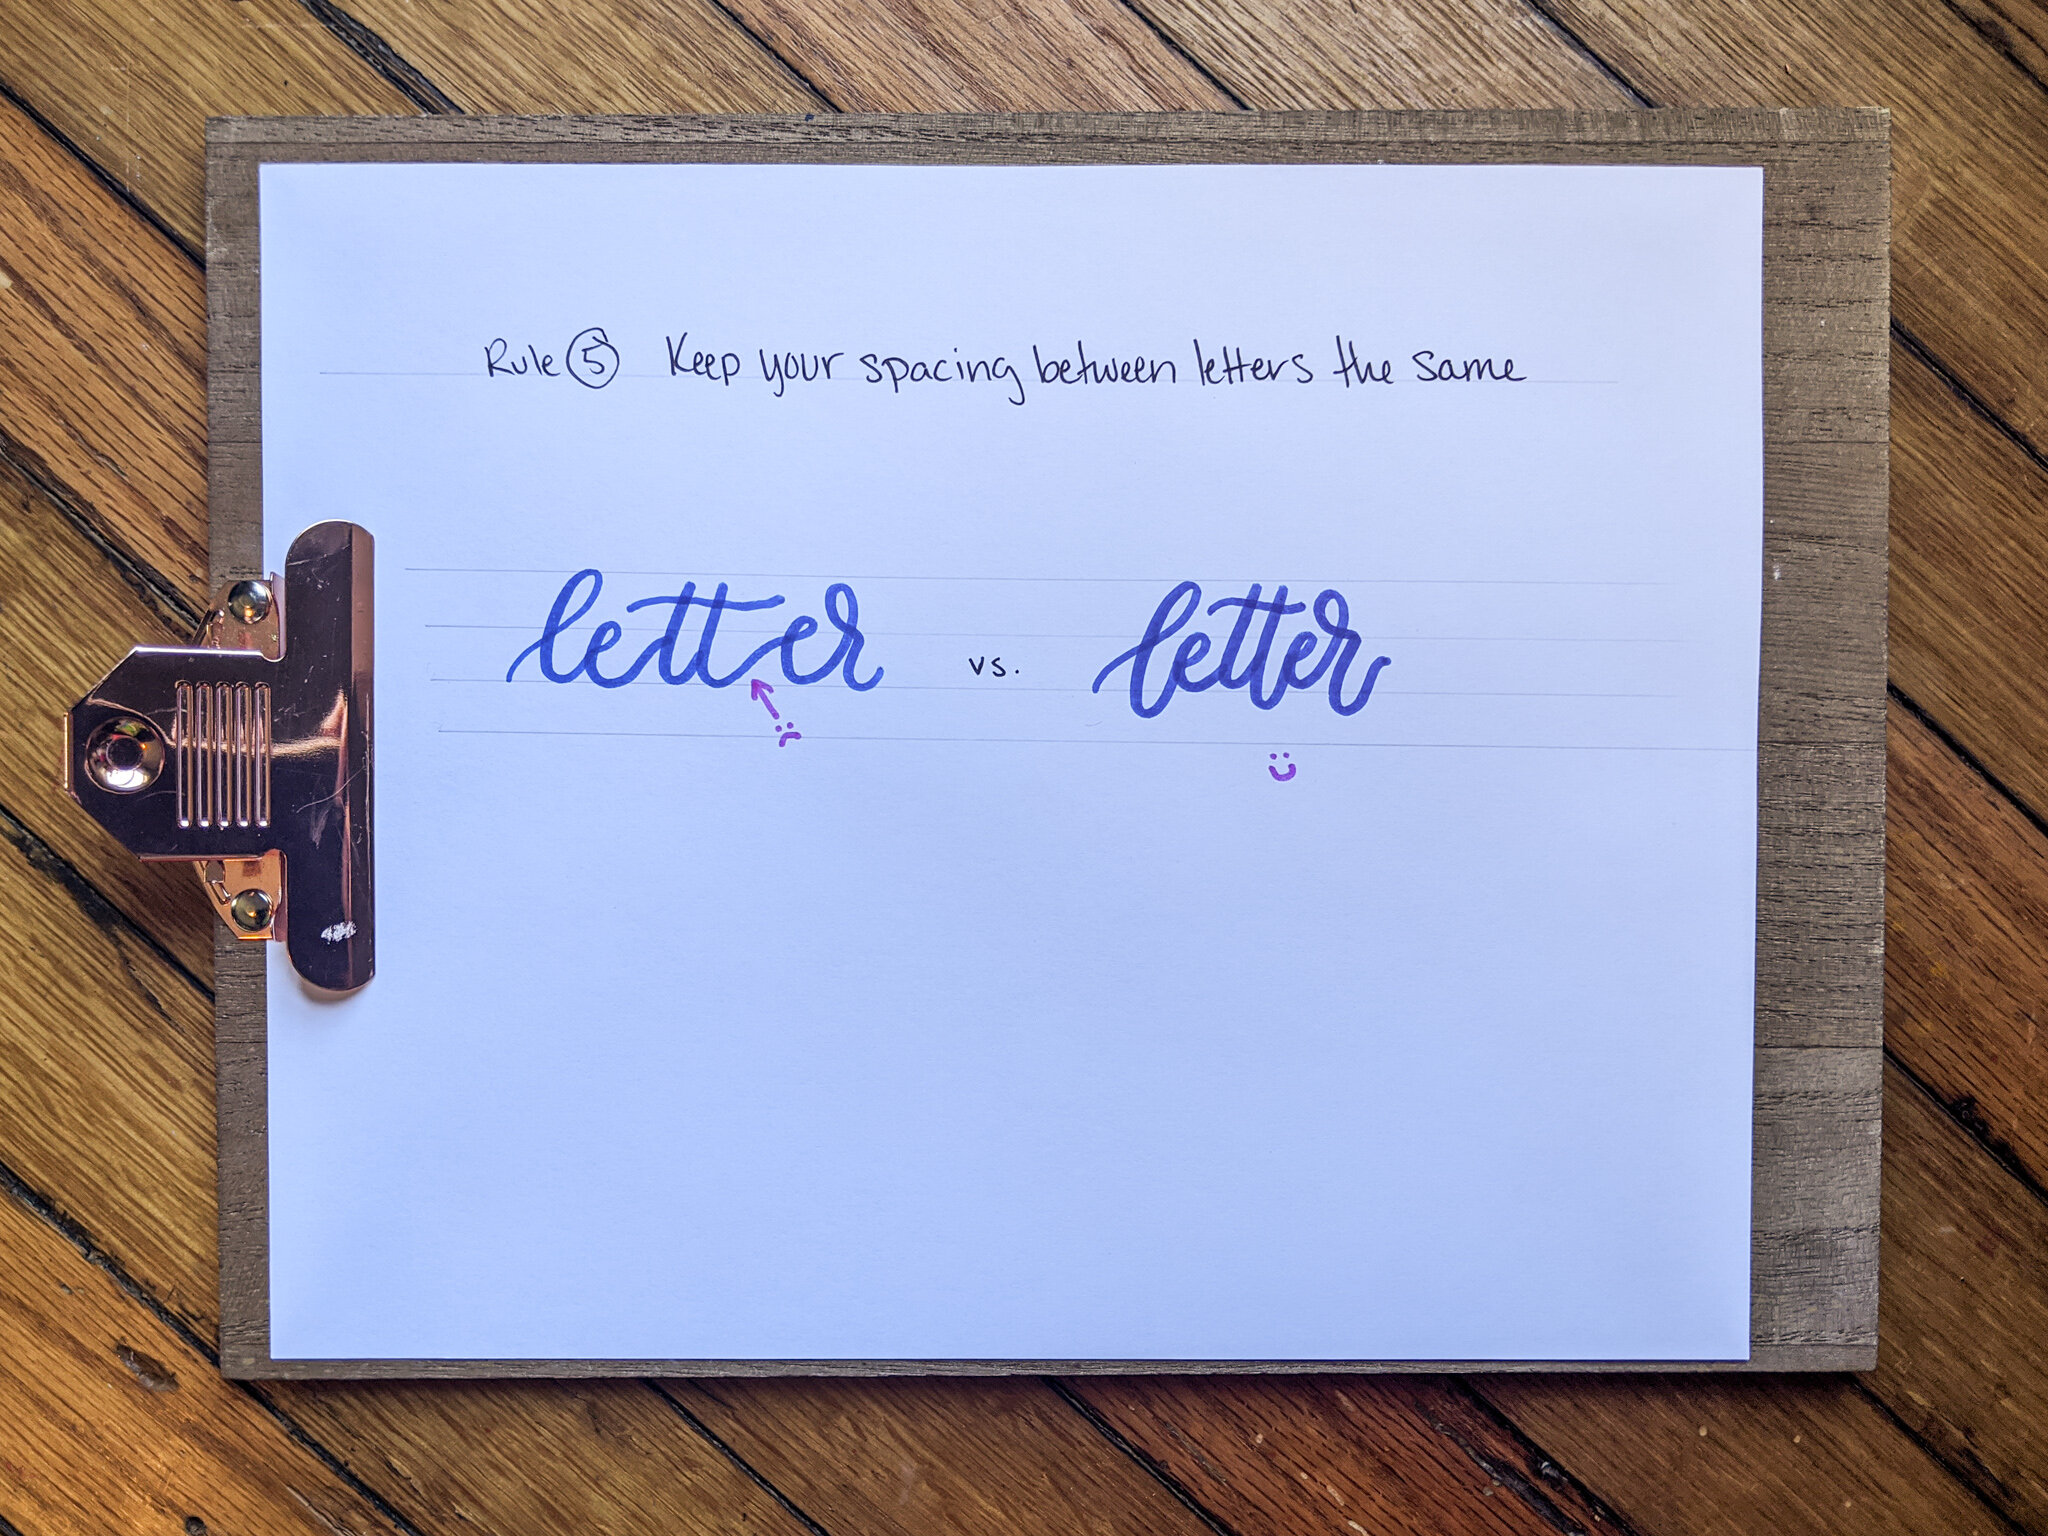 Rule 5 Keep your spacing between letters the same
letter vs. letter